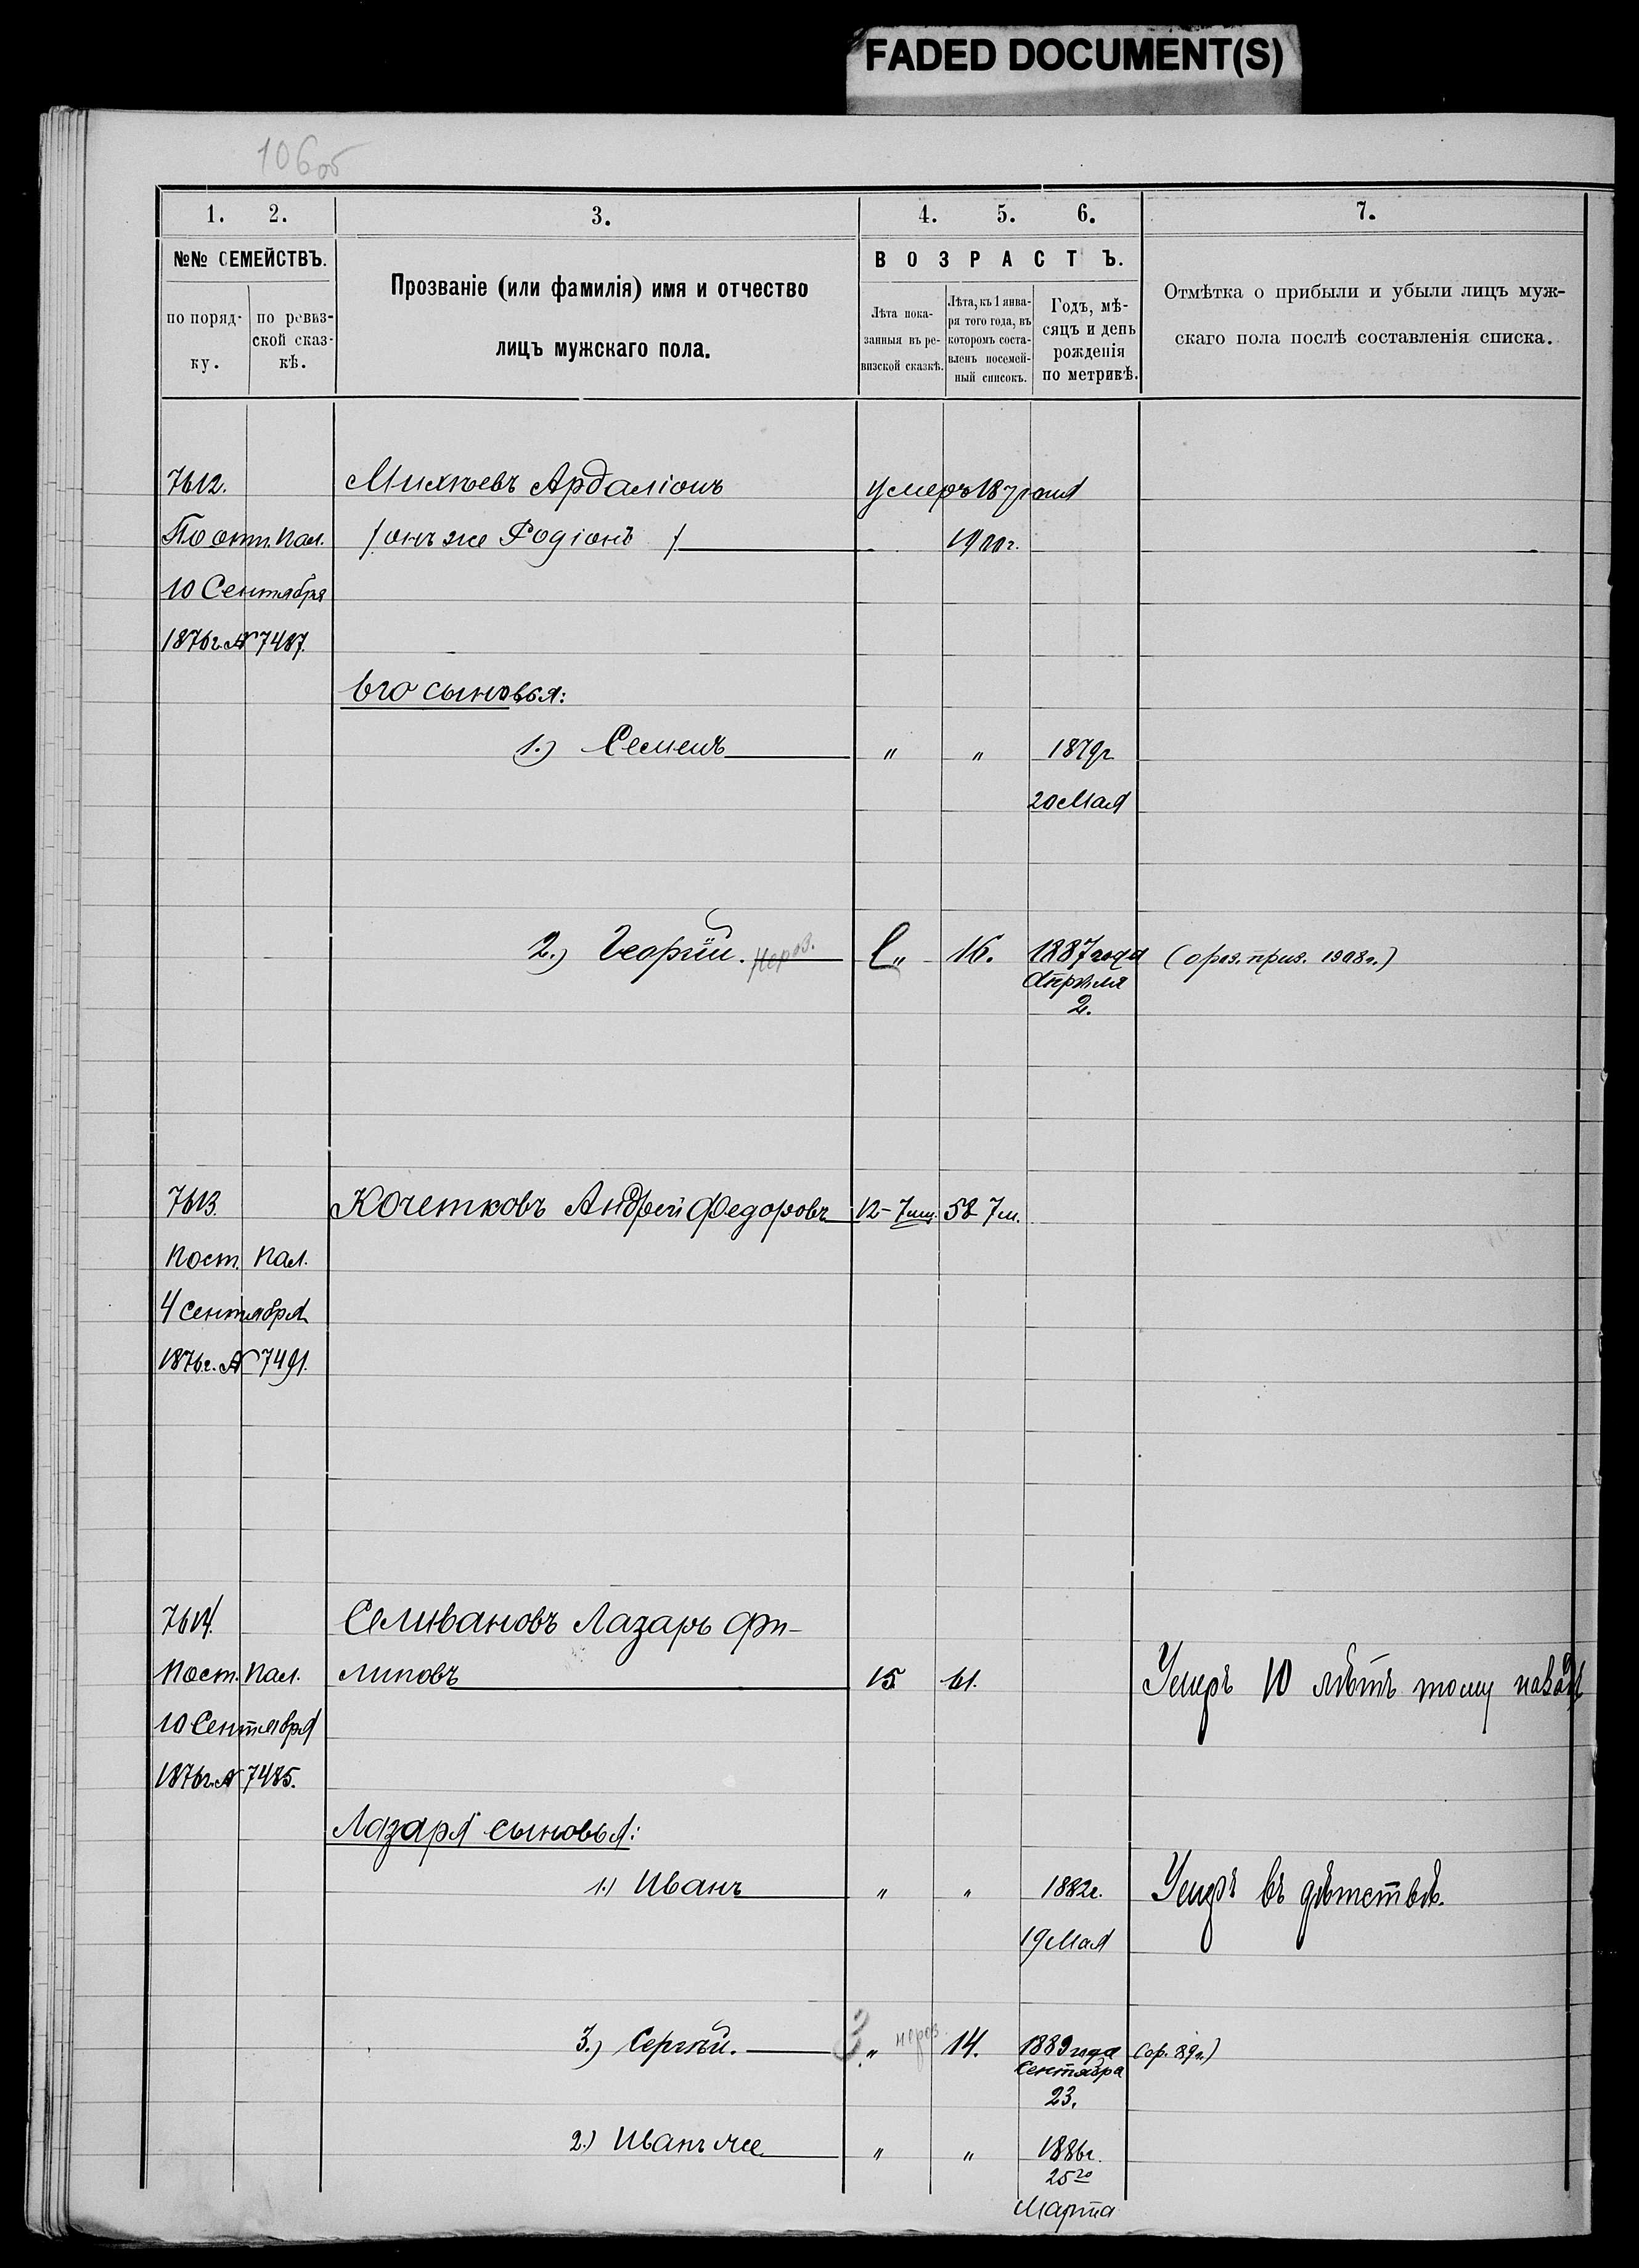 FADED DOCUMENT(S)
106об
1. 2. 3. 4. 5. 6. 7.
№№ СЕМЕЙСТВЪ.
по поряд-
ку.
по ревиз-
ской сказ-
кѣ.
Прозваніе (или фамилія) имя и отчество
лицъ мужскаго пола.
ВОЗРАСТЪ.
Лѣта пока-
занныя въ ре-
визской сказкѣ.
Лѣта, къ 1 янва-
ря того года, въ
которомъ соста-
вленъ посемей-
ный списокъ.
Годъ, мѣ-
сяцъ и день
рожденія
по метрикѣ.
Отмѣтка о прибыли и убыли лицъ муж-
скаго пола послѣ составленія списка.
7612. Михѣевъ Ардаліонъ умеръ 18
По отн. Пал. / онъ же Родіонъ /
10 Сентября
1876г. № 7487.
Его сыновья:
1.) Семенъ " " 1879г
20 Мая
2.) Георгій. " 16. 1887 года (приз. 1908г.)
Апрѣля
2.
7613. Кочетковъ Андрей Федоровъ 12-7 м. 58 7 м.
Пост. Пал.
4 Сентября
1876г. № 7491.
7614. Селивановъ Лазарь Фи-
Пост. Пал. липовъ 15. 61. Умеръ 10 лѣтъ тому назадъ
10 Сентября
1876г. № 7485.
Лазаря сыновья:
1.) Иванъ " " 1882г. Умеръ въ дѣтствѣ.
19 Мая
3.) Сергѣй. 3 " 14. 1889 года (ор. 89г.)
Сентября
23.
2.) Иванъ же " " 1886г.
25го
Марта